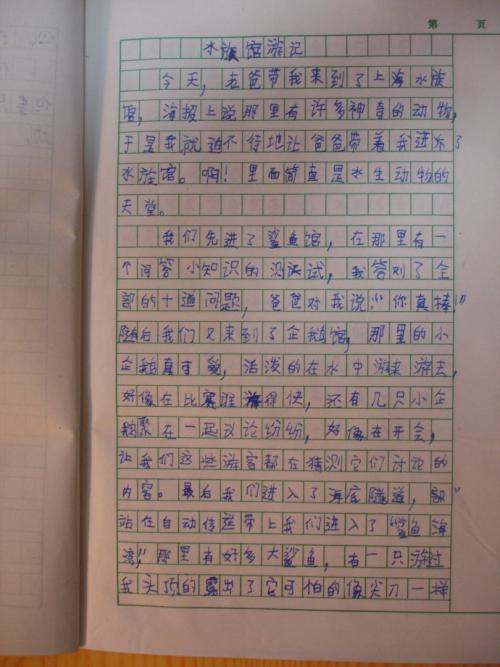 第 页
水族馆游记
今天，老爸带我来到了上海水族
馆，海报上说那里有许多神奇的动物，
于是我就迫不待地让爸爸带着我进了
水族馆。啊！里面简直是水生动物的
天堂。
我们先进了鲨鱼馆，在那里有一
个问答小知识的测试，我答对了全
部的十道问题，爸爸对我说：“你真棒！”
随后我们又来到了企鹅馆，那里的小
企鹅真可爱，活泼的在水中游来游去，
好像在比赛谁游得快，还有几只小企
鹅聚在一起议论纷纷，好像在开会，
让我们这些游客都在猜测它们讨论的
内容。最后我们进入了海底隧道，
站在自动传送带上我们进入了“鲨鱼海
湾”，那里有好多大鲨鱼，有一只游过
我头顶的露出了它可怕的像尖刀一样